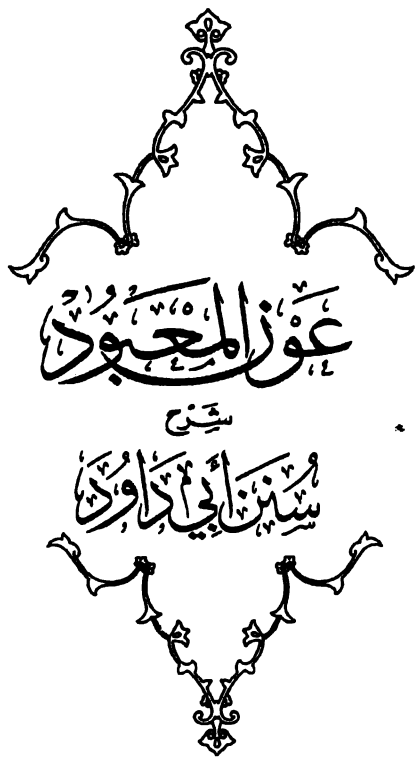 عَوْنُ المَعْبُود
شَرْح
سُنَن أَبِي دَاوُدَ